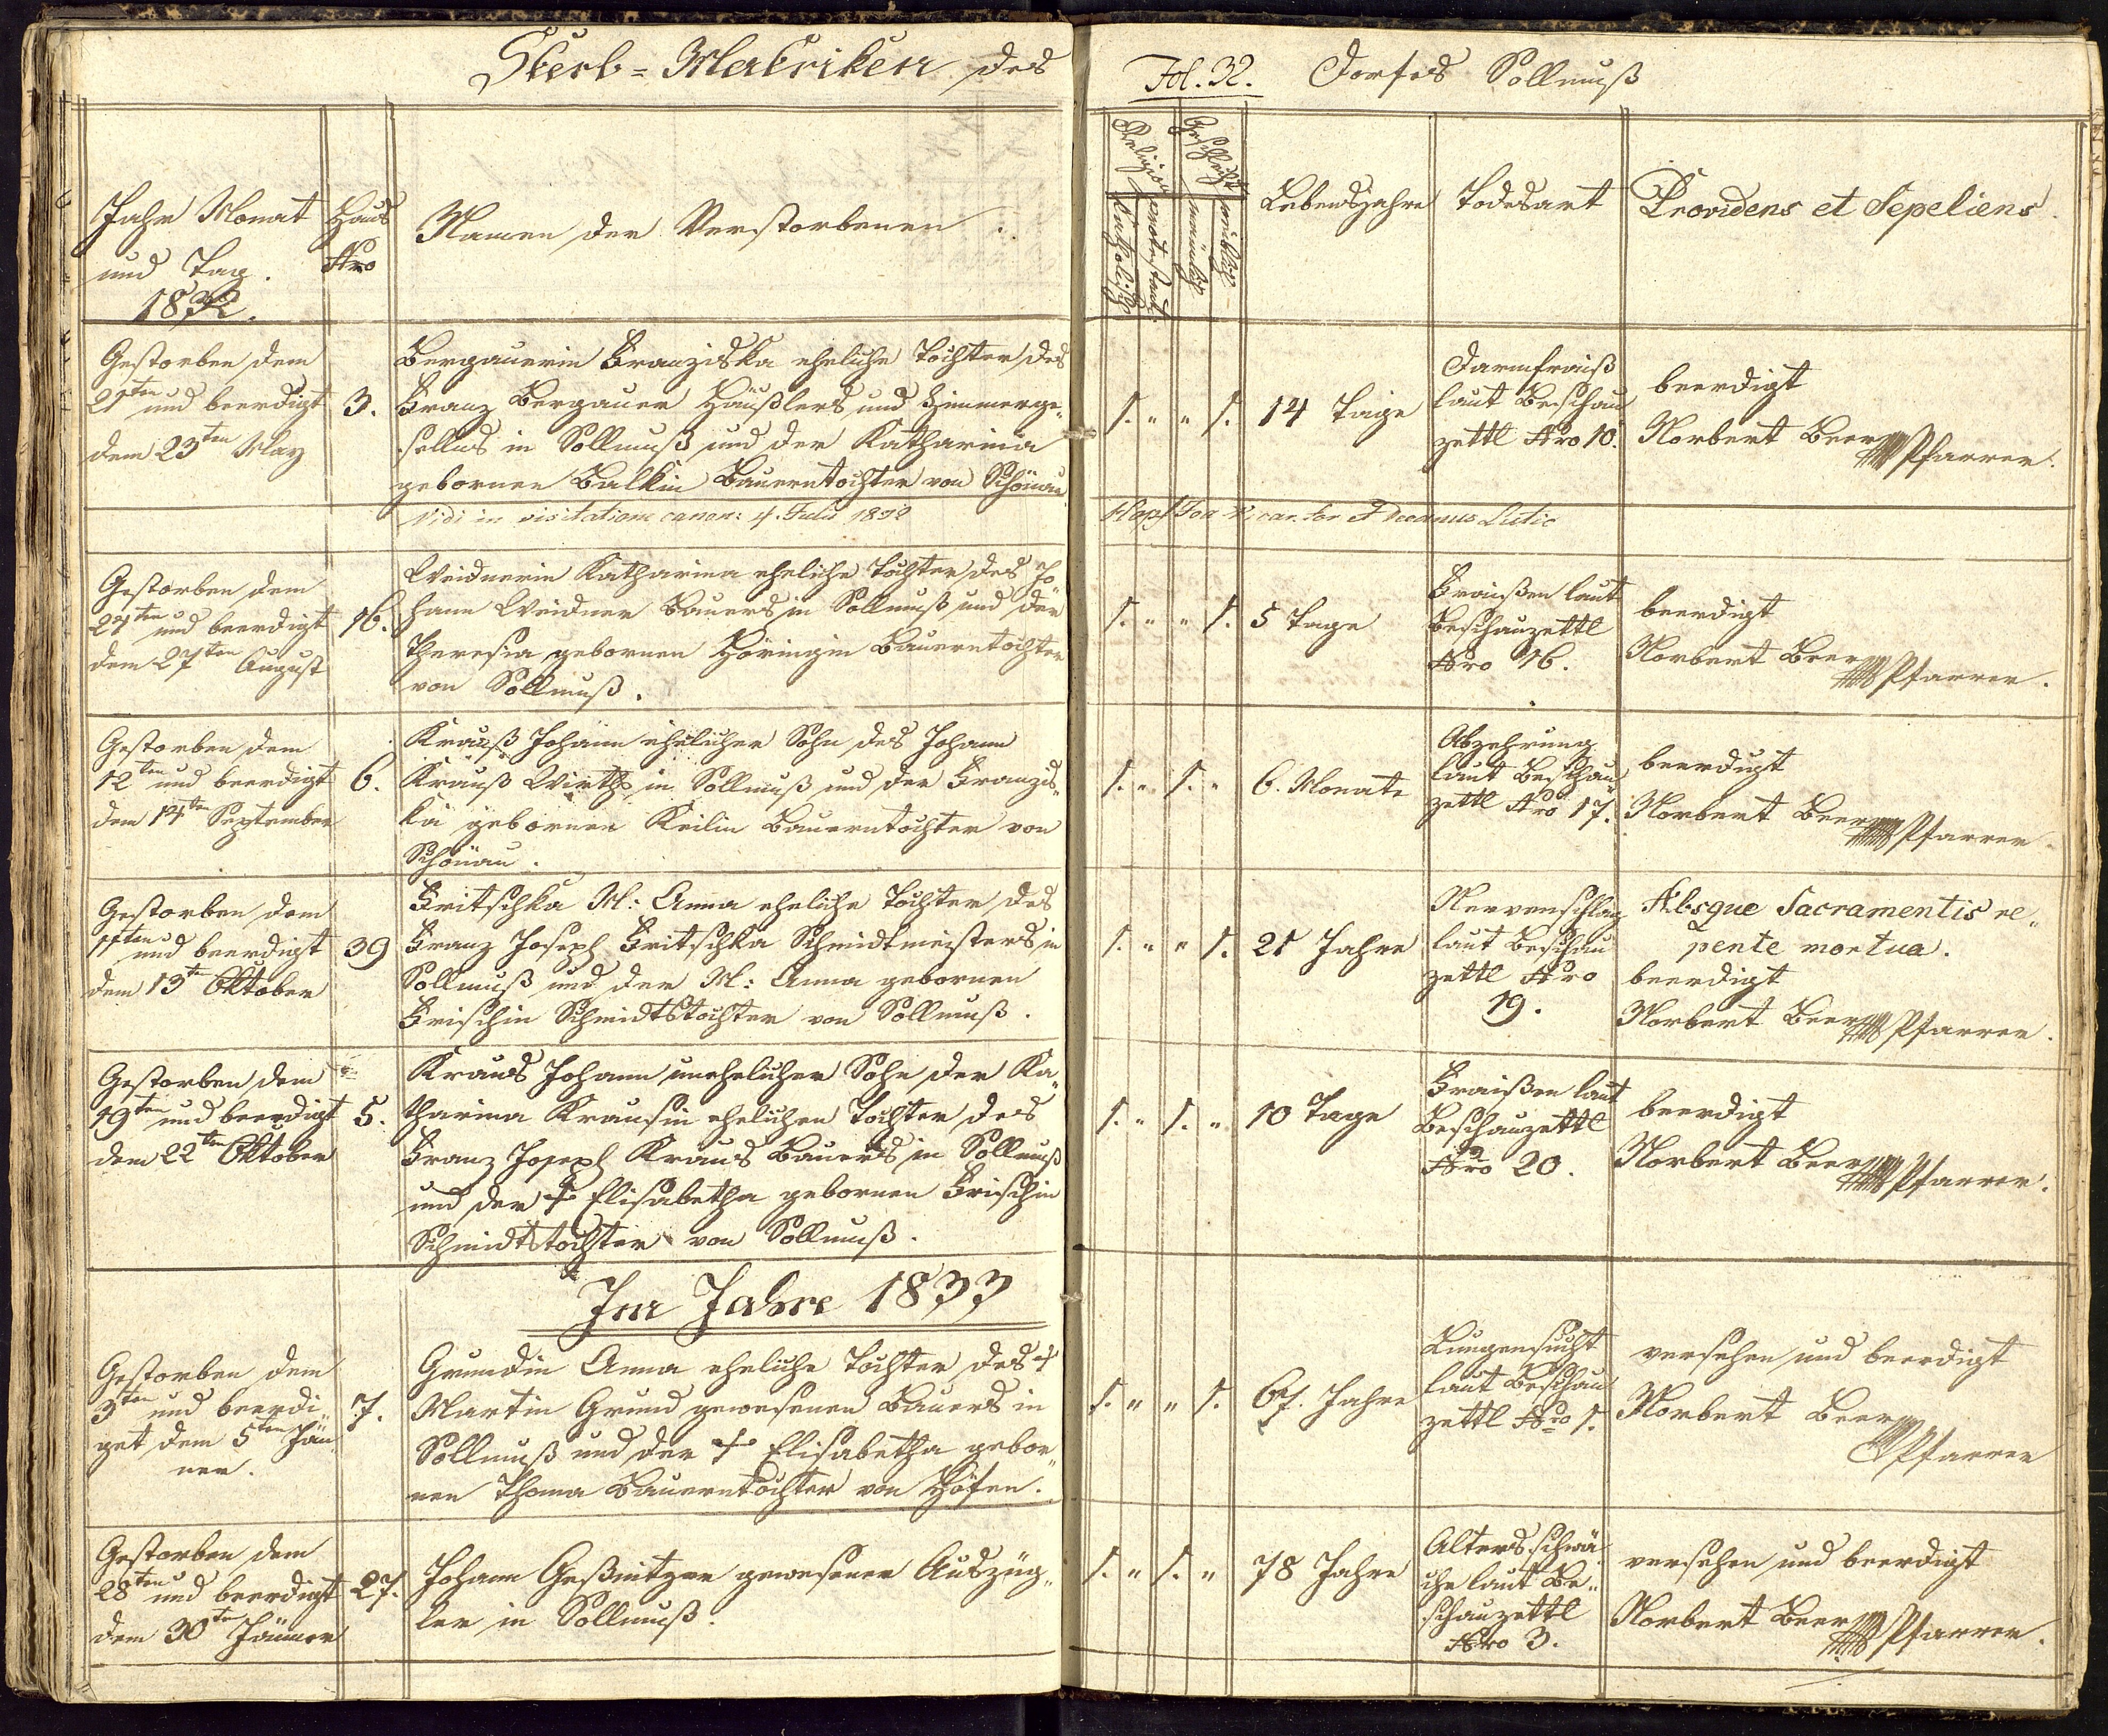 Sterb-Matriken des
Fol. 32. Dorfes Sollmuß
Jahr Monat
und Tag.
1832.
Haus
Nro
Namen der Verstorbenen.
Religion
katholisch
protestant.
Geschlecht
männlich
weiblich
Lebensjahre
Todesart
Providens et Sepeliens.
Gestorben dem
21ten und beerdigt
dem 23ten May
3.
Bergauerin Franziska eheliche Tochter des
Franz Bergauer Häußlers und Zimmerge-
sellens in Sollmuß und der Katharina
gebornen Balkin Bauerntochter von Schönau
1. " " 1.
14 Tage
Darmfraiß
laut Beschau
zettl Nro 10.
beerdigt
Norbert Beer Pfarrer.
Vidi in visitatione canon: 4. Julii 1832
Gestorben dem
27ten und beerdigt
dem 27ten August
16.
Weidnerin Katharina eheliche Tochter des Jo
hann Weidner Bauers in Sollmuß und der
Theresia gebornen Höringin Bauerntochter
von Sollmuß.
1. " " 1.
5 Tage
Fraißen laut
Beschauzettl
Nro 16.
beerdigt
Norbert Beer Pfarrer.
Gestorben dem
12ten und beerdigt
dem 14ten September
6.
Krauß Johann ehelicher Sohn des Johann
Krauß Wirths in Sollmuß und der Franzis-
ka gebornen Keilin Bauerntochter von
Schönau.
1. " 1. "
6. Monate
Abzehrung
laut Beschau
zettl Nro 17.
beerdigt
Norbert Beer Pfarrer
Gestorben dem
11ten und beerdigt
dem 13ten Oktober
39
Fritschka M: Anna eheliche Tochter des
Franz Joseph Fritschka Schmidtmeisters in
Sollmuß und der M: Anna gebornen
Frischin Schmidtstochter von Sollmuß.
1. " " 1.
21 Jahre
Nervenschlag
laut Beschau
zettl Nro
19.
Absque Sacramentis re-
pente mortua.
beerdigt
Norbert Beer Pfarrer.
Gestorben dem
19ten und beerdigt
dem 22ten Oktober
5.
Kraus Johann unehelicher Sohn der Ka-
tharina Krausin ehelichen Tochter des
Franz Joseph Kraus Bauers in Sollmuß
und der † Elisabetha gebornen Frischin
Schmidtstochter von Sollmuß.
1. " 1. "
10 Tage
Fraißen laut
Beschauzettl
Nro 20.
beerdigt
Norbert Beer Pfarrer.
Im Jahre 1833
Gestorben dem
3ten und beerdi-
get dem 5ten Jän
ner.
7.
Grundin Anna eheliche Tochter des †
Martin Grund gewesenen Bauers in
Sollmuß und der † Elisabetha gebor-
nen Thoma Bauerntochter von Höfen.
1. " " 1.
67. Jahre
Lungensucht
laut Beschau
zettl Nro 1.
versehen und beerdigt
Norbert Beer
Pfarrer
Gestorben dem
28ten und beerdigt
dem 30ten Jänner
27.
Johann Geßnitzer gewesener Auszüg-
ler in Sollmuß.
1. " 1. "
78 Jahre
Altersschwä
che laut Be-
schauzettl
Nro 3.
versehen und beerdigt
Norbert Beer Pfarrer.